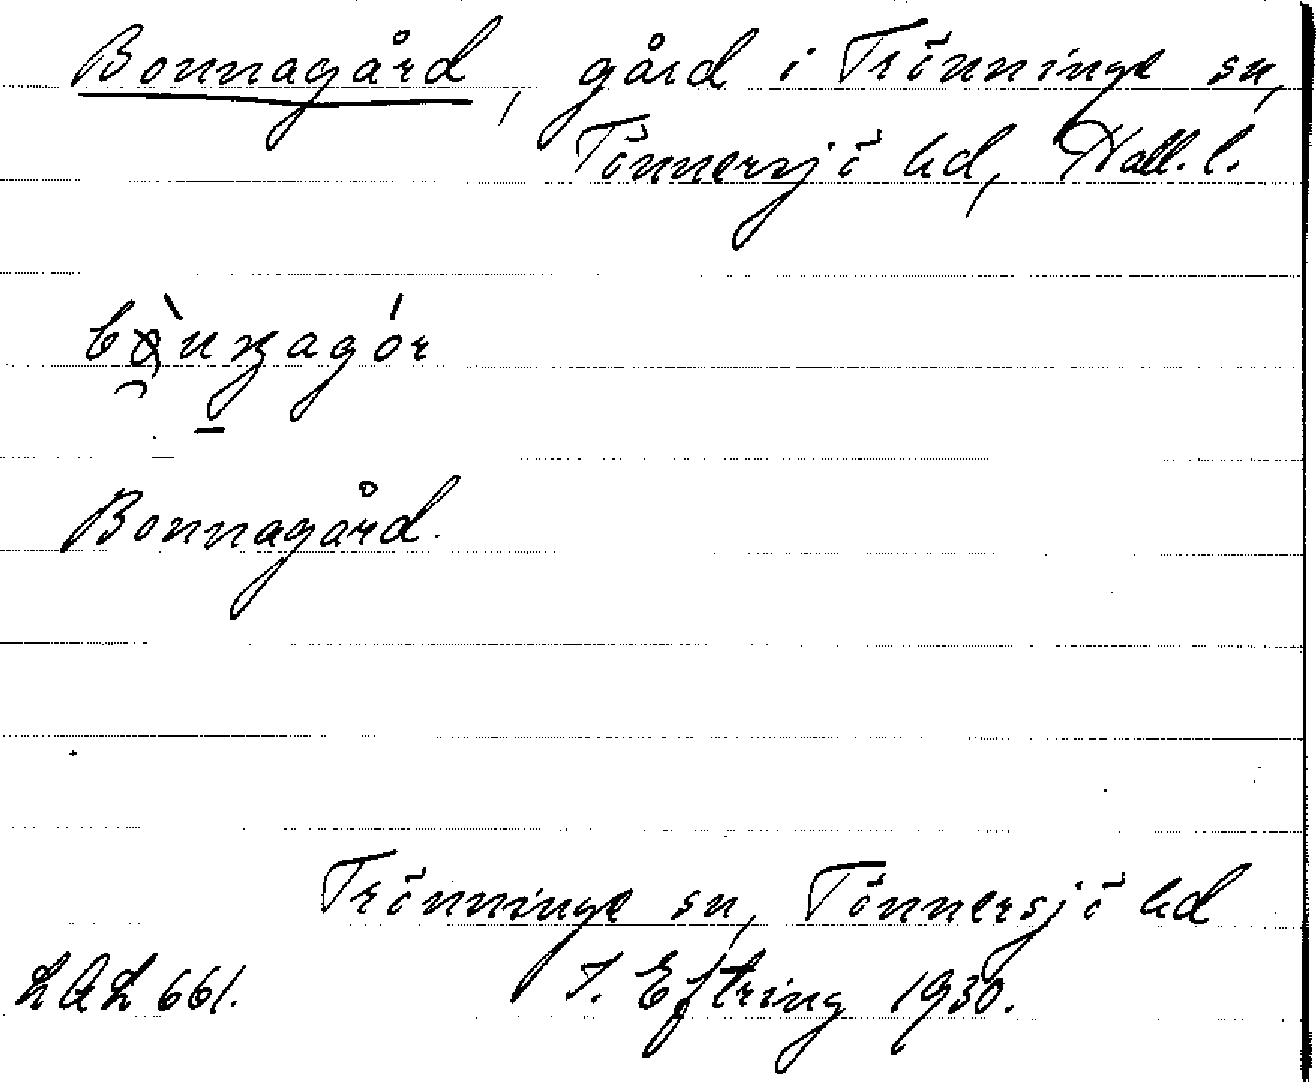 Bonnagård, gård i Trönninge sn,
Tönnersjö hd, Hall. l.
Bonnagård.
Trönninge sn, Tönnersjö hd
LAL 661. J. Eftring 1930.